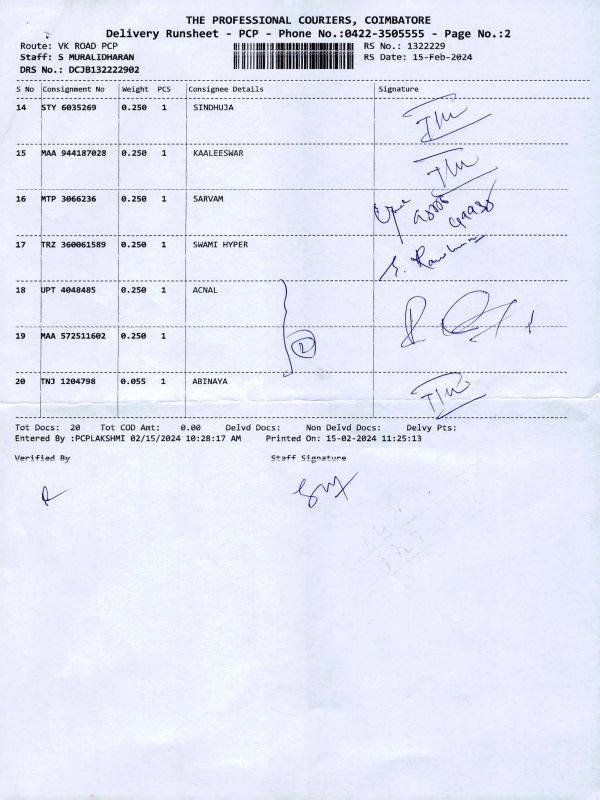 THE PROFESSIONAL COURIERS, COIMBATORE
Delivery Runsheet - PCP - Phone No.:0422-3505555 - Page No.:2
Route: VK ROAD PCP RS No.: 1322229
Staff: S MURALIDHARAN RS Date: 15-Feb-2024
DRS No.: DCJB132222902
S No Consignment No Weight PCS Consignee Details Signature
14 STY 6035269 0.250 1 SINDHUJA
15 MAA 944187028 0.250 1 KAALEESWAR
16 MTP 3066236 0.250 1 SARVAM
17 TRZ 360061589 0.250 1 SWAMI HYPER
18 UPT 4048485 0.250 1 ACNAL
19 MAA 572511602 0.250 1
2
20 TNJ 1204798 0.055 1 ABINAYA
Tot Docs: 20 Tot COD Amt: 0.00 Delvd Docs: Non Delvd Docs: Delvy Pts:
Entered By :PCPLAKSHMI 02/15/2024 10:28:17 AM Printed On: 15-02-2024 11:25:13
Verified By Staff Signature